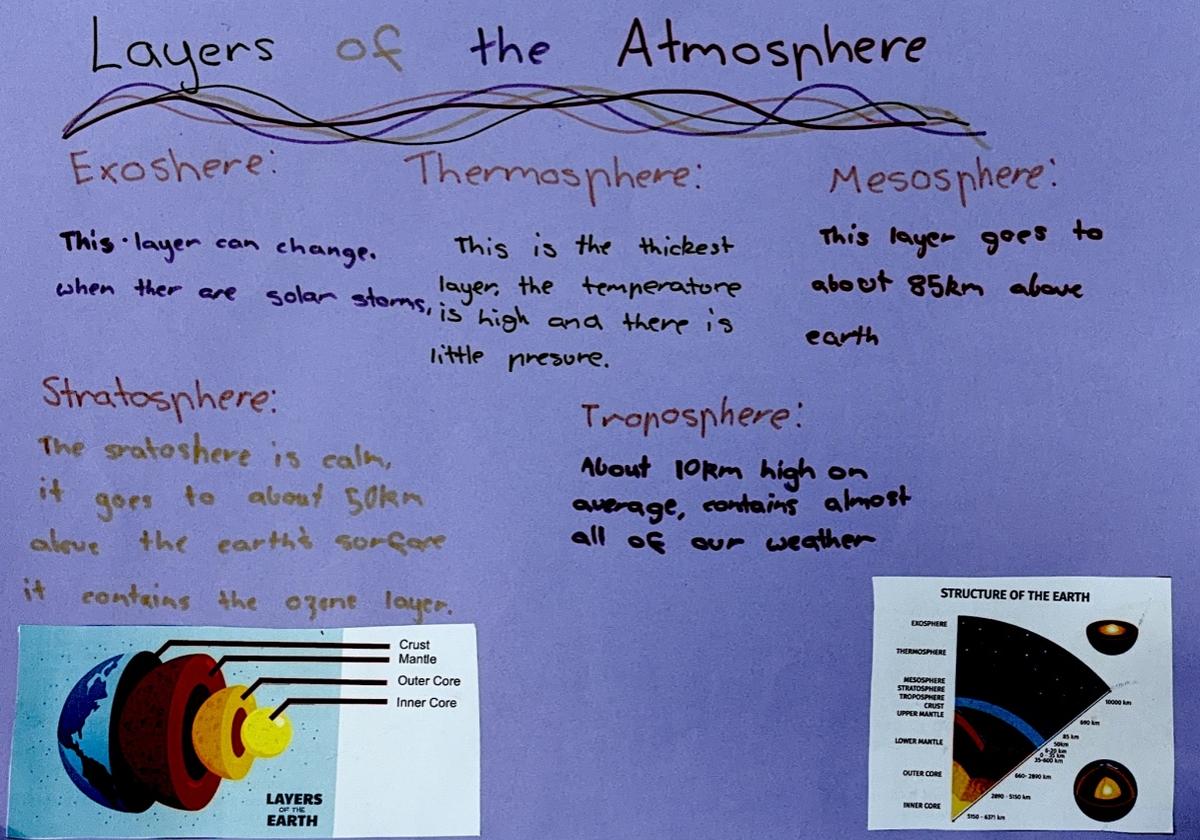 Layers of the Atmosphere
Exoshere:
This layer can change.
when ther are solar storms,
Thermosphere:
This is the thickest
layer, the temperature
is high and there is
little presure.
Mesosphere:
This layer goes to
about 85km above
earth
Stratosphere:
The sratoshere is calm,
it goes to about 50km
above the earth's surface
it contains the ozone layer.
Troposphere:
About 10km high on
average, contains almost
all of our weather
Crust
Mantle
Outer Core
Inner Core
LAYERS
OF THE
EARTH
STRUCTURE OF THE EARTH
EXOSPHERE
THERMOSPHERE
MESOSPHERE
STRATOSPHERE
TROPOSPHERE
CRUST
UPPER MANTLE
LOWER MANTLE
OUTER CORE
INNER CORE
10000 km
690 km
85 km
50km
35-600 km
660- 2890 km
2890 - 5150 km
5150 - 6371 km